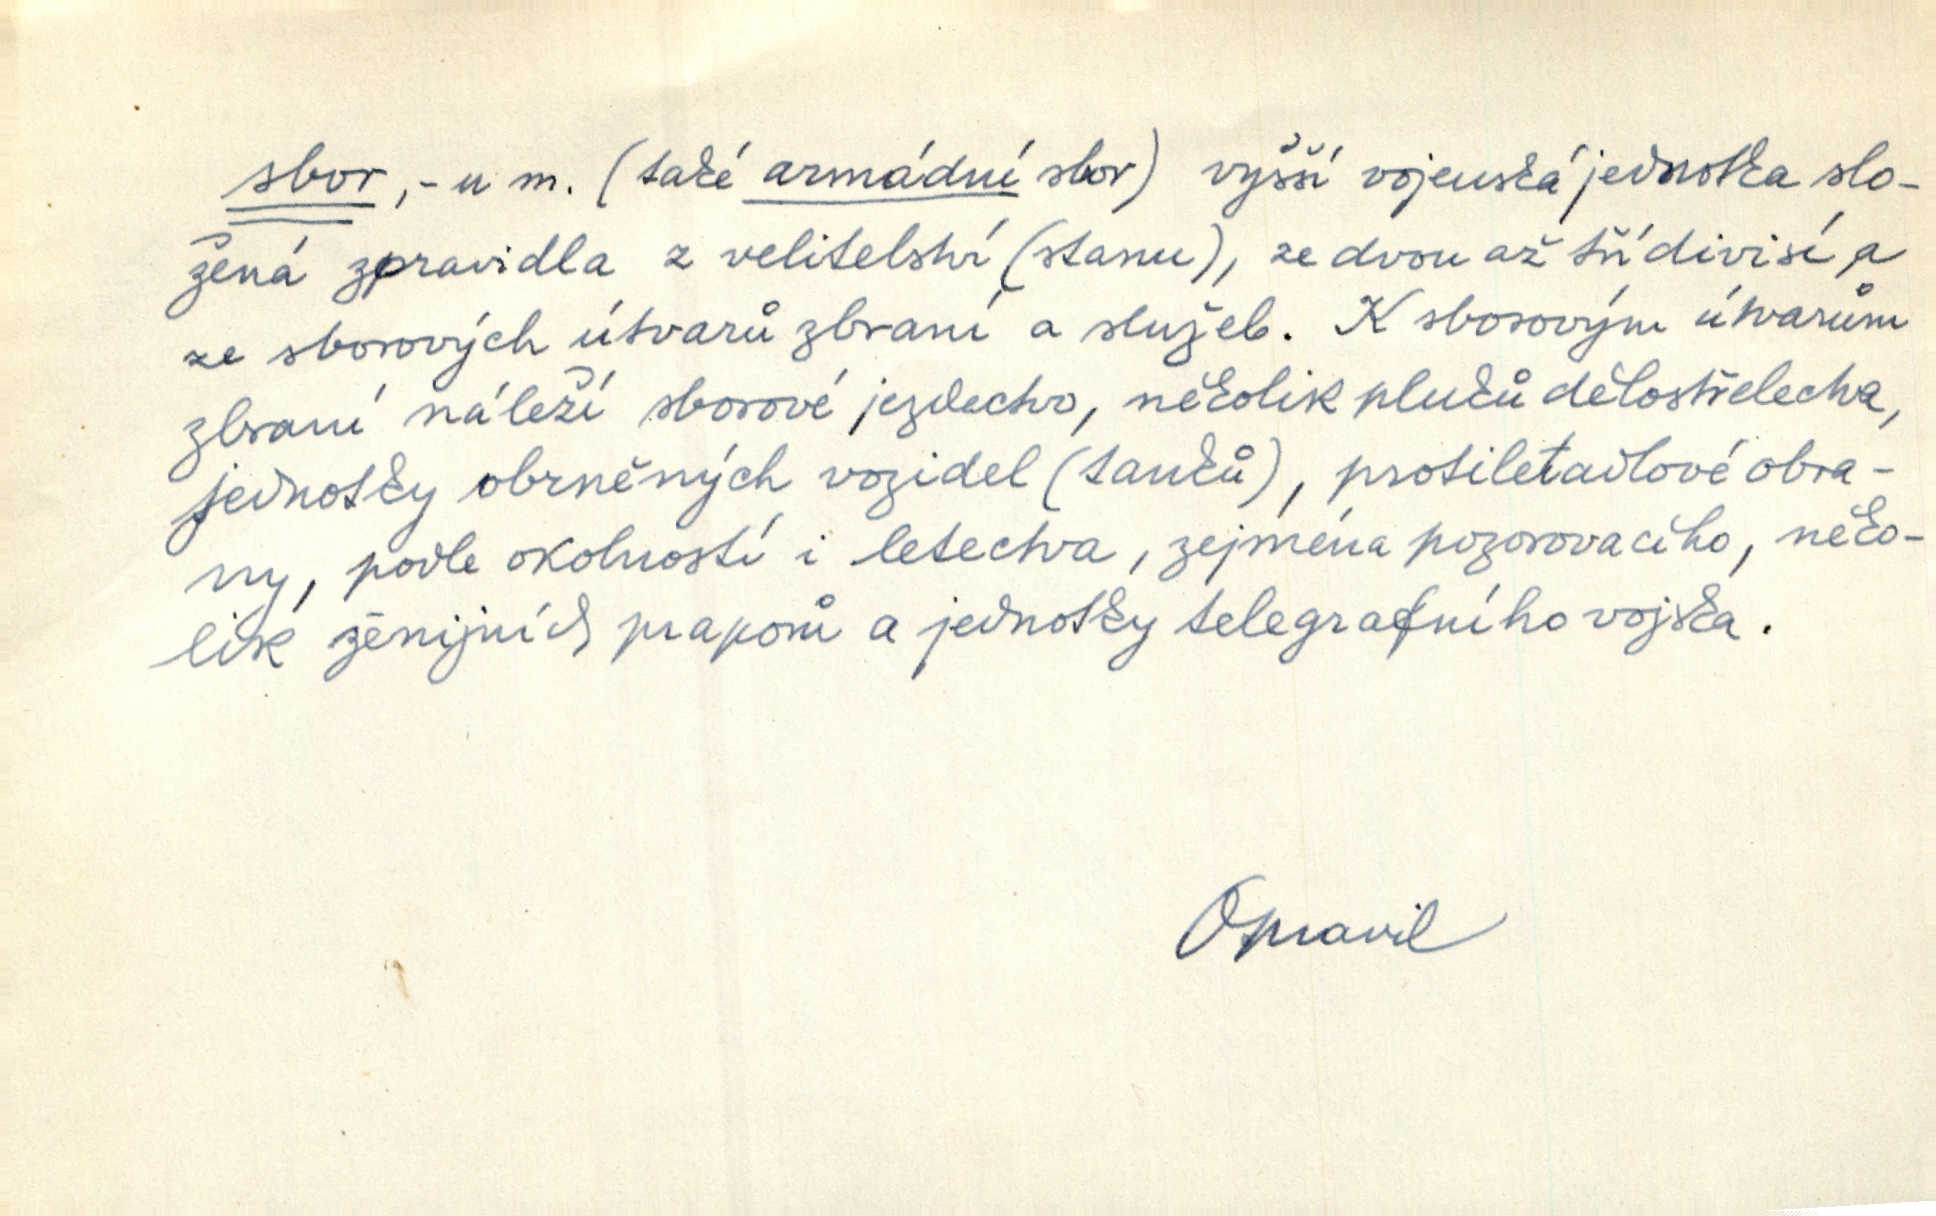 sbor, -u m. (také armádní sbor) vyšší vojenská jednotka slo-
žená zpravidla z velitelství (stanu), ze dvou až tří divisí a
ze sborových útvarů zbraní a služeb. K sborovým útvarům
zbraní náleží sborové jezdectvo, několik pluků dělostřelectva,
jednotky obrněných vozidel (tanků), protiletadlové obra-
ny, podle okolností i letectva, zejména pozorovacího, něko-
lik ženijních praporů a jednotky telegrafního vojska.
Opravil